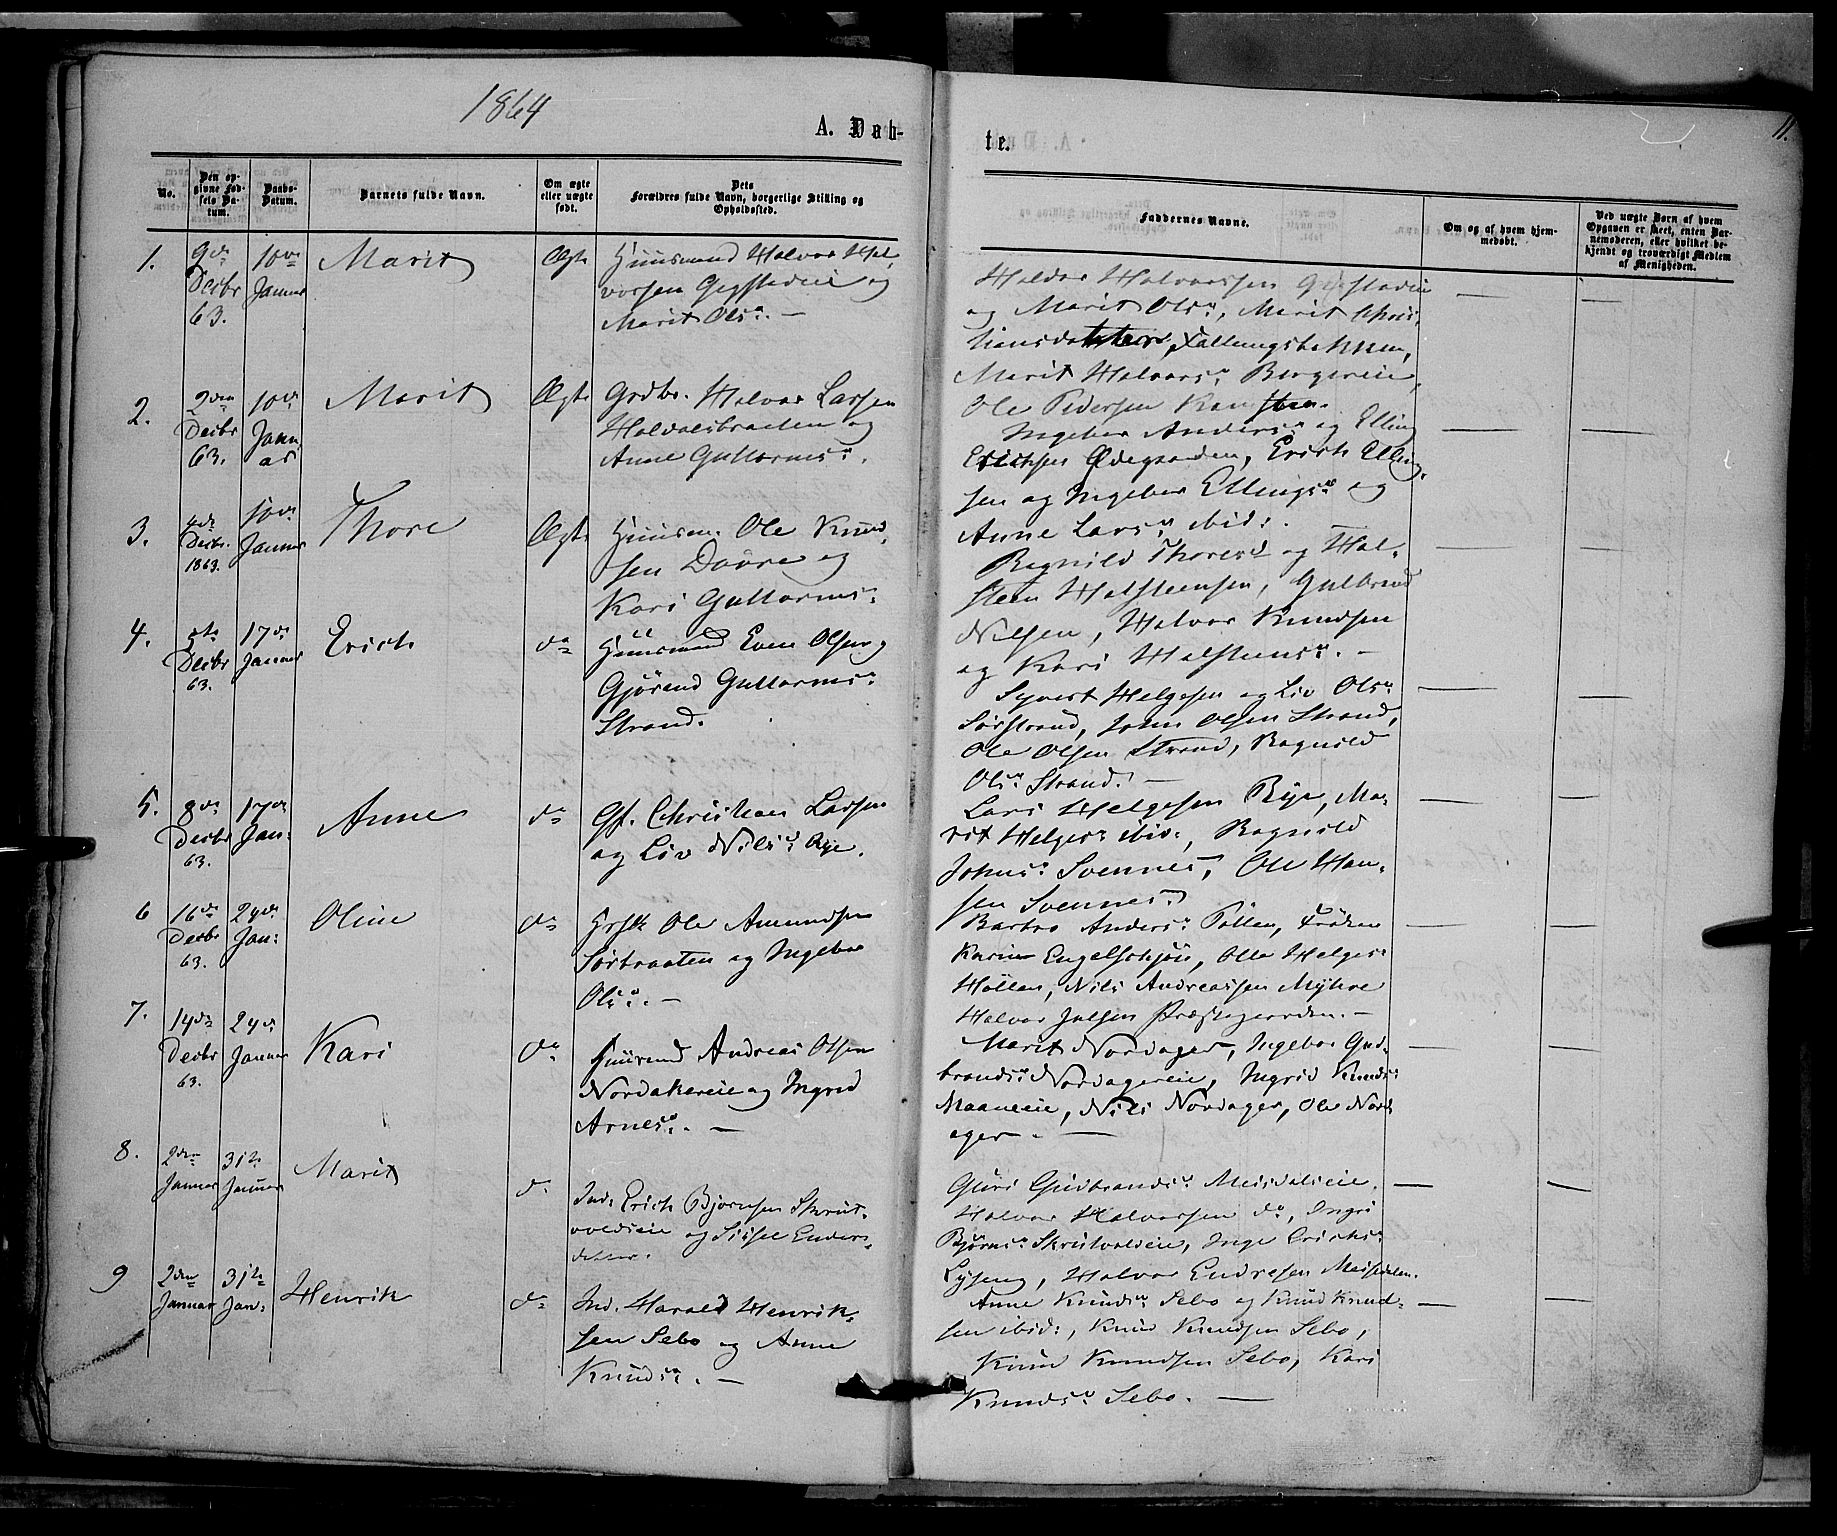 1864
A. Daab-
te.
11.
No.
Den op-
givne Fød-
sels Da-
tum.
Daabs-
Datum.
Barnets fulde Navn.
Om ægte
eller uægte
født.
Dets
Forældres fulde Navn, borgerlige Stilling og
Opholdssted.
Faddernes Navne.
Om og af hvem hjem-
medøbt.
Ved uægte Børn af hvem
Opgaven er skeet, enten Bar-
nemoderen, eller hvilket be-
kjendt og troværdigt Medlem
af Menigheden.
1.
9de
Decbr
63.
10de
Januar
Marit
Ægte
Huusmand Halvor Hal-
vorsen Gigstadeie og
Marit Olsd. —
Halvor Halvorsen Gigstadeie
og Marit Olsd, Marit Chris-
tiansdatter, Fallingsbakken,
Marit Halvorsd Bergeeie,
Ole Pedersen
2.
2den
Decbr
63.
10de
Janu
ar
Marit
Ægte
Grdbr. Halvor Larsen
Halvalsbraaten og
Anne Guttormsd.
Ingebor Andersd og Elling
Erichsen Ødegaarden, Erich Elling-
sen og Ingebor Ellingsd og
Anne Larsd ibid:.
3.
4de
Decbr.
1863.
10de
Januar
Thore
Ægte
Huusm. Ole Knud-
sen Dovre og
Kari Guttormsd:
Ragnild Thoresd og Hal-
steen Halsteensen, Gulbrand
Nilsen, Halvor Knudsen
og Kari Halsteensd. —
4.
5te
Decbr
63.
17de
Januar
Erich
do
Huusmand Even Olsen og
Gjørend Guttormsd:
Strand.
Syvert Helgesen og Liv Olsd
Sørstrand, John Olsen Strand,
Ole Olsen Strand, Ragnild
Olsd Strand. —
5.
8de
Decbr
63.
17de
Jan:
Anne
do
Gf. Christian Larsen
og Liv Nilsd: Rye.
Lars Helgesen Rye, Ma-
rit Helgesd ibid:, Ragnild
Johnsd: Svennes, Ole Han-
sen Svennes.
6
16de
Decbr
63.
24de
Jan:
Oline
do
Ole Amundsen
Sørbraaten og Ingebor
Olsd. —
Barbro Andersd: Pollen, Frøken
Karine Engelschjøn, Olia Helgesd:
Høllen, Nils Andreassen Myhre
Halvor Julsen Præstegaarden. —
7.
14de
Decbr
63.
24de
Januar
Kari
do
Huusmd Andreas Olsen
Nordakereie og Ingrid
Arnesd. —
Marit Nordager, Ingebor Gud-
brandsd: Nordagereie, Ingrid Knudsd:
Maaneeie, Nils Nordager, Ole Nord-
ager. —
8.
2den
Januar
31te
Januar
Marit
do
Ind: Erich Bjørnsen Skrut-
voldseie og Sissel Enders-
datter.
Guri Gudbrandsd: Meisdalseie,
Halvor Halvorsen do, Ingri
Bjørnsd: Skrutvoldeie, Inge Erichsd:
Lyseng, Halvor Endresen Meisdalen.
9
2den
Januar
31te
Jan:
Henrik
do
Ind. Harald Henrik-
sen Sebo og Anne
Knudsd. —
Anne Knudsd Sebo og Knud Knud-
sen ibid:, Knud Knudsen Sebo,
Knud Knudsen Sebo, Kari
Knudsd Sebo. —